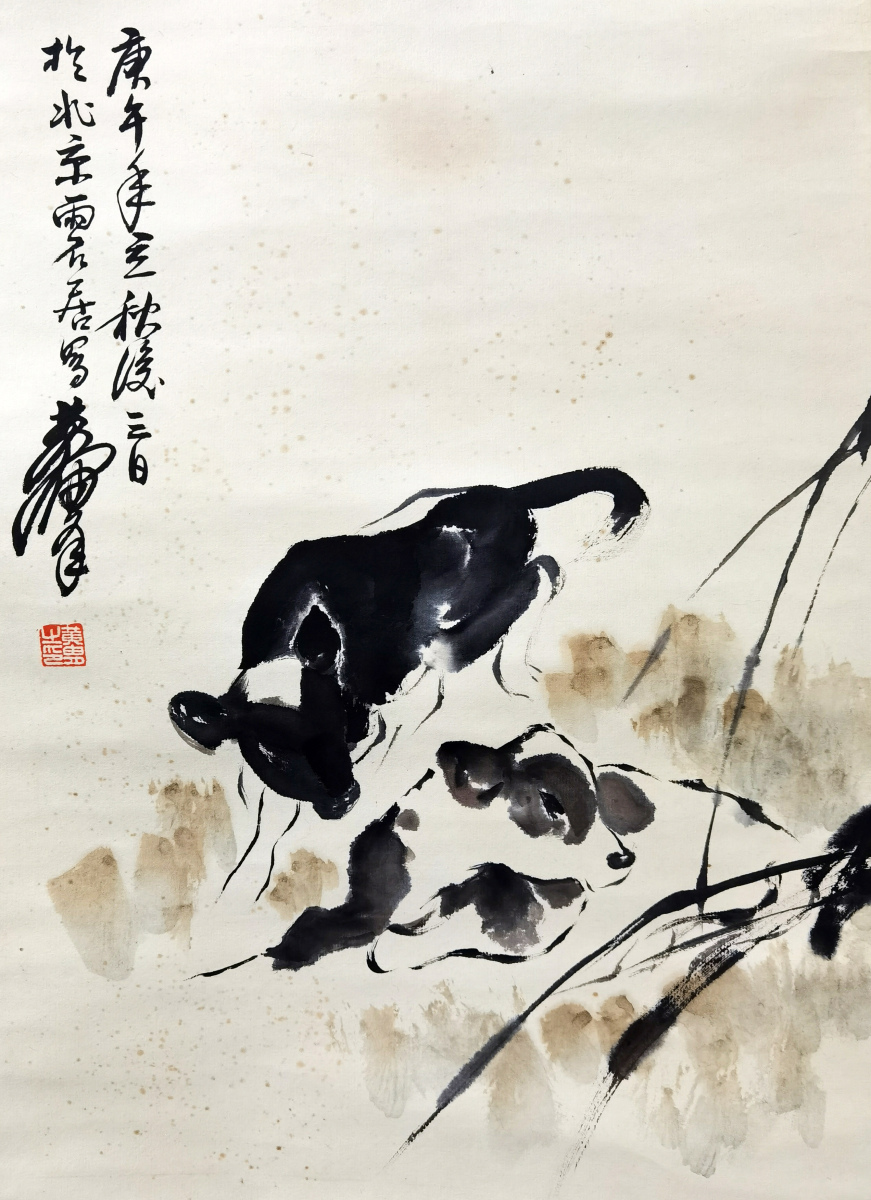 庚午年立秋後三日
於北京雨石居寫 黄胄
黄胄之印